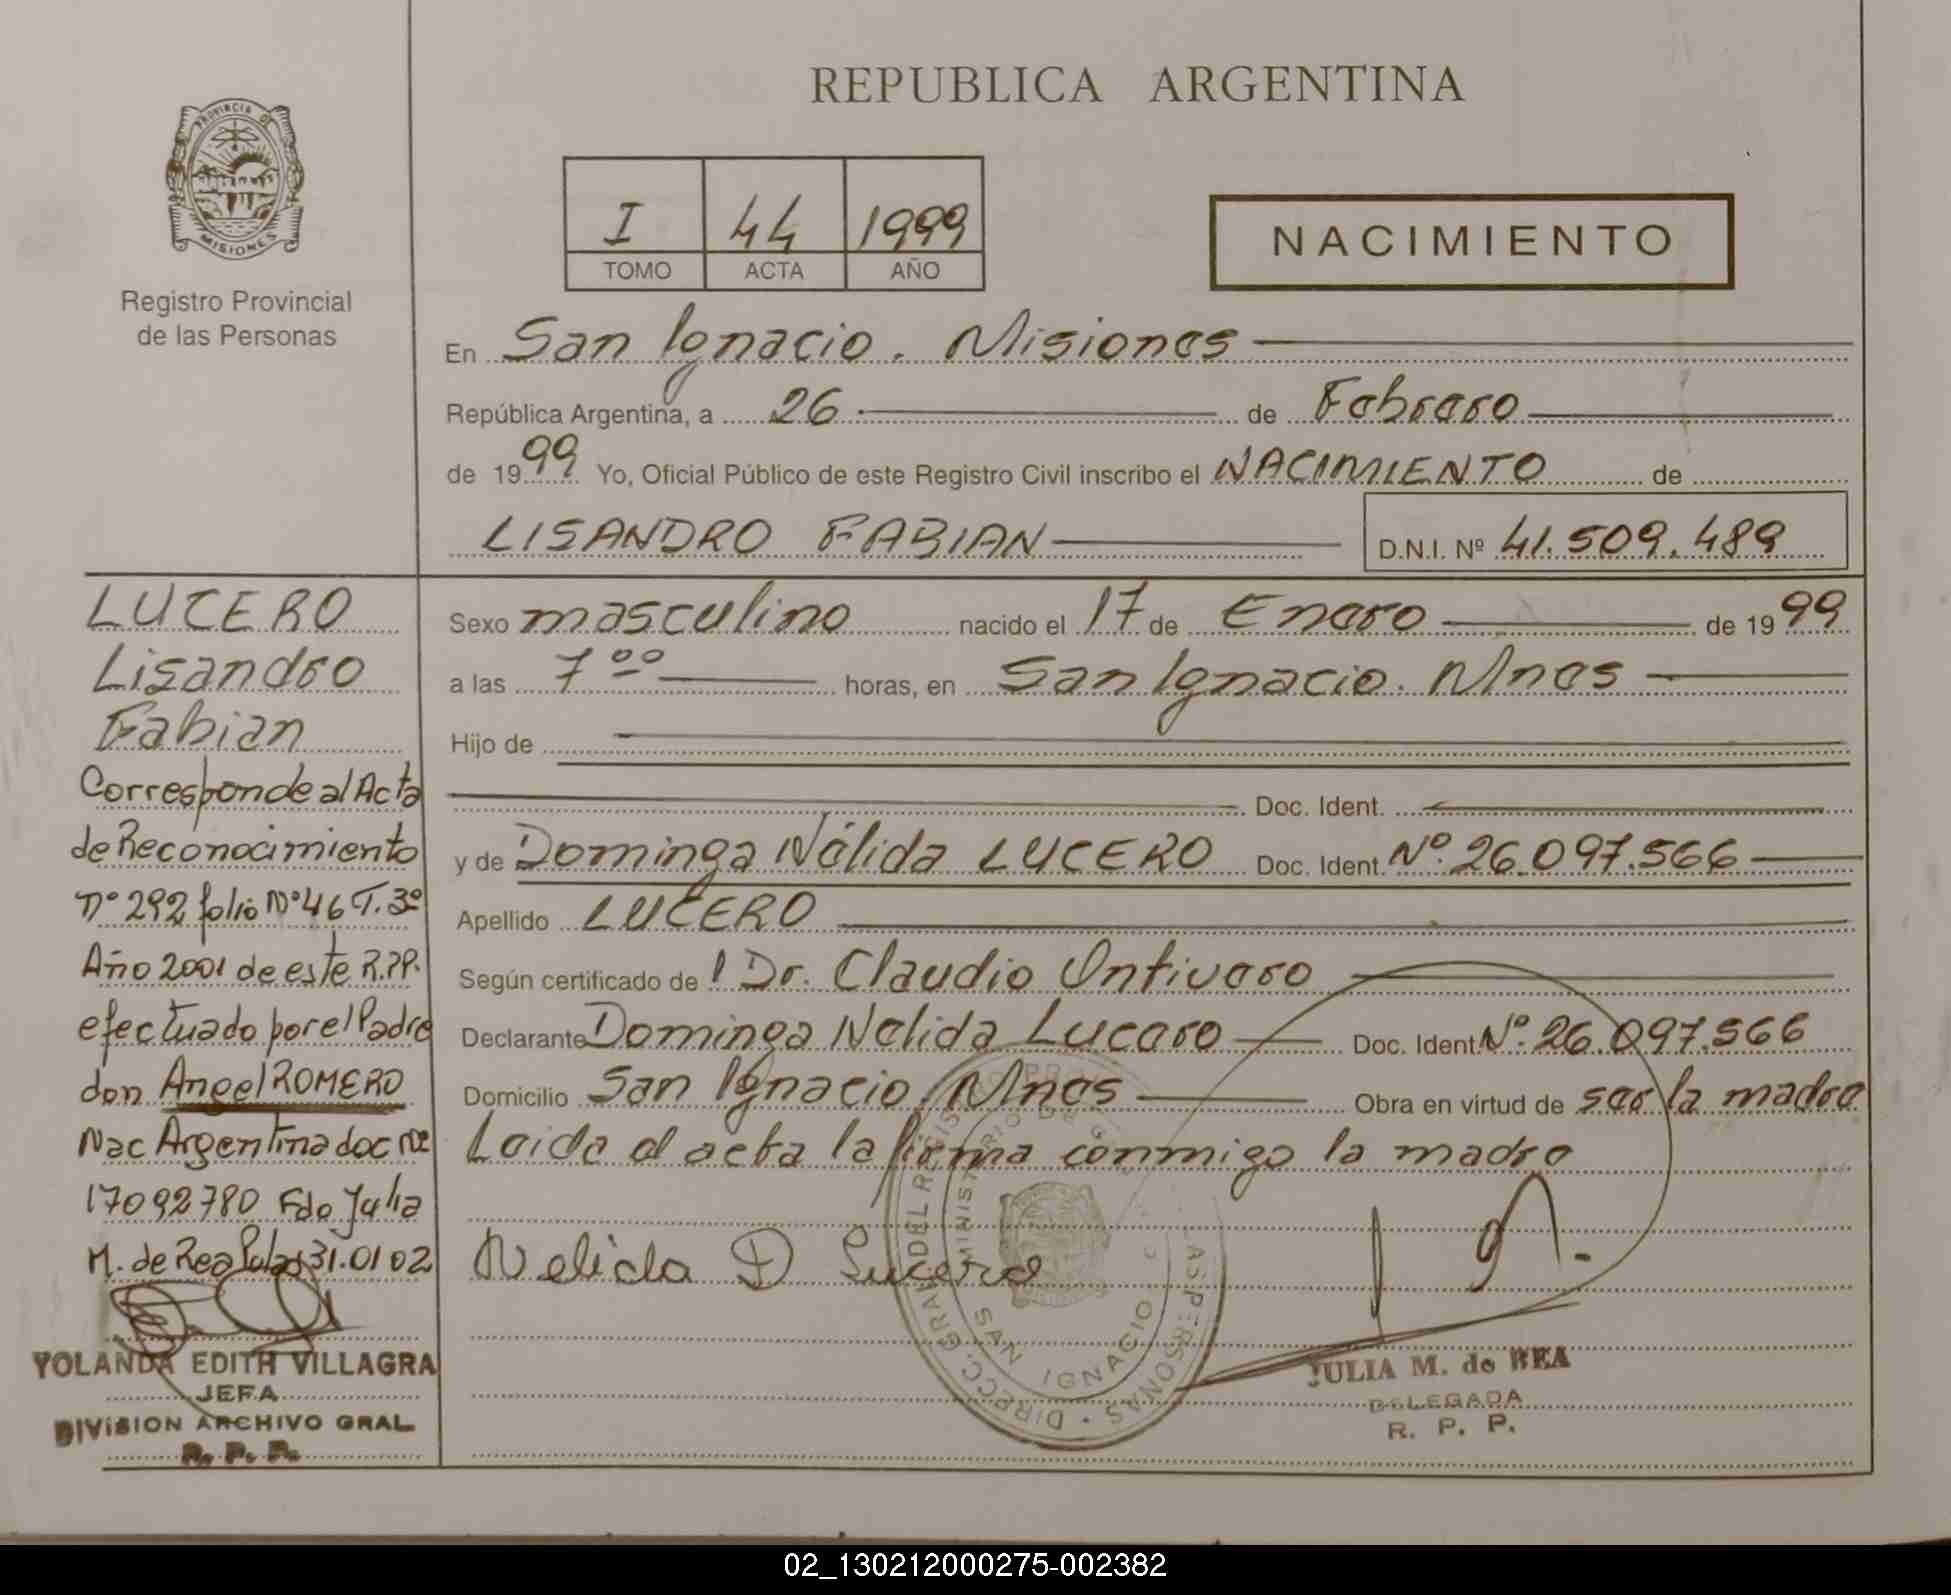 REPUBLICA ARGENTINA
PROVINCIA DE MISIONES
Registro Provincial
de las Personas
I 44 1999
TOMO ACTA AÑO
NACIMIENTO
En San Ignacio. Misiones
República Argentina, a 26 de Febrero
de 1999 Yo, Oficial Público de este Registro Civil inscribo el NACIMIENTO de
LISANDRO FABIAN D.N.I. Nº 41.509.489
Sexo masculino nacido el 17 de Enero de 1999
a las 7ºº horas, en San Ignacio. Mnes
Hijo de
Doc. Ident.
y de Dominga Nélida LUCERO Doc. Ident. Nº. 26.097.566
Apellido LUCERO
Según certificado de l Dr. Claudio Ontivero
Declarante Dominga Nelida Lucero Doc. Ident. Nº. 26.097.566
Domicilio San Ignacio. Mnes Obra en virtud de ser la madre
Leida el acta la firma conmigo la madre
Nelida D Lucero
JULIA M. de REA
DELEGADA
R. P. P.
DIRECC. GRAL. DEL REGIST. PROV. DE LAS PERSONAS
MINISTERIO DE G
SAN IGNACIO
LUCERO
Lisandro
Fabian
Corresponde al Acta
de Reconocimiento
Nº 292 folio Nº 46 T. 3º
Año 2001 de este R.P.P.
efectuado por el Padre
don Angel ROMERO
Nac Argentina doc Nº
17092780 Fdo Julia
M. de Rea 31.01 02
YOLANDA EDITH VILLAGRA
JEFA
DIVISION ARCHIVO GRAL
R. P. P.
02_130212000275-002382